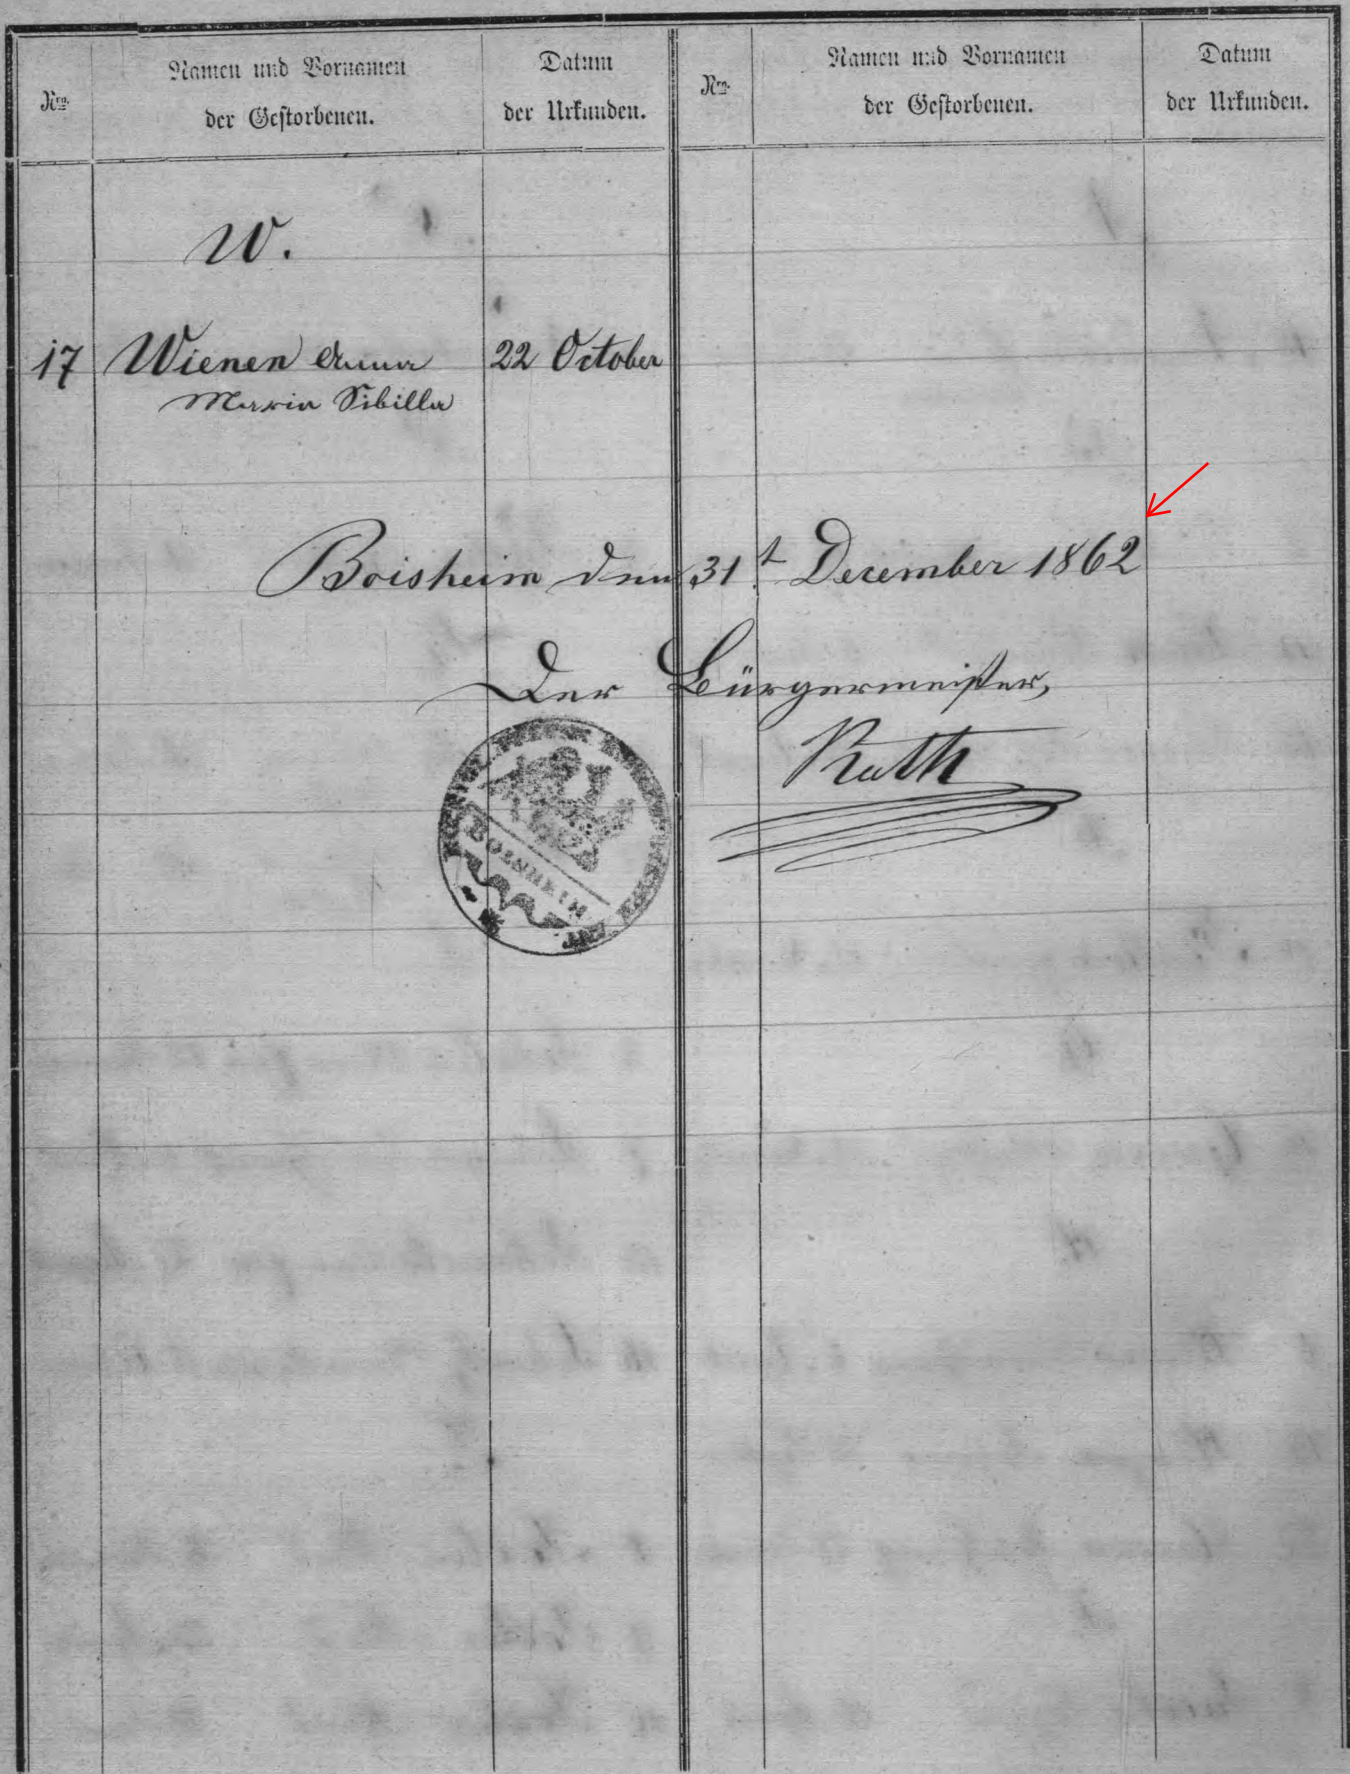 Nro.
Namen und Vornamen
der Gestorbenen.
Datum
der Urkunden.
Nro.
Namen und Vornamen
der Gestorbenen.
Datum
der Urkunden.
W.
17 Wienen Anna 22 October
Maria Sibilla
Boisheim den 31t December 1862
Der Bürgermeister,
Rath
BOISHEIM